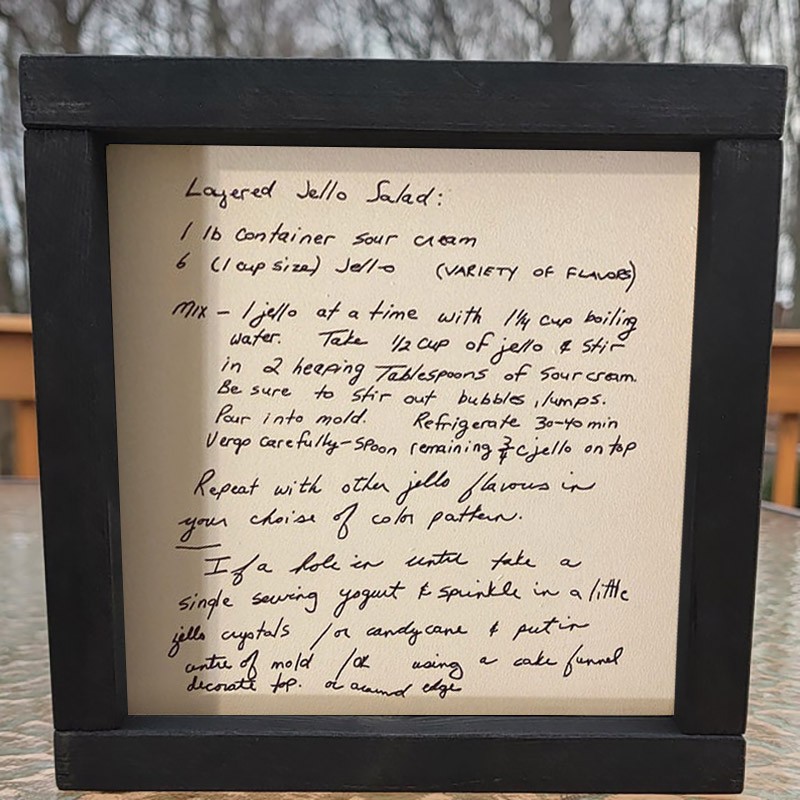 Layered Jello Salad:
1 lb container sour cream
6 (1 cup size) Jell-o (VARIETY OF FLAVORS)
Mix - 1 jello at a time with 1 1/4 cup boiling
water. Take 1/2 cup of jello & stir
in 2 heaping Tablespoons of sour cream.
Be sure to stir out bubbles, lumps.
Pour into mold. Refrigerate 30-40 min
Verqo carefully-spoon remaining 3/4 c jello on top
Repeat with other jello flavours in
your choise of color pattern.
If a hole in until take a
single serving yogurt & sprinkle in a little
jello crystals /or candycane & put in
centre of mold /OR using a cake funnel
decorate top. or around edge